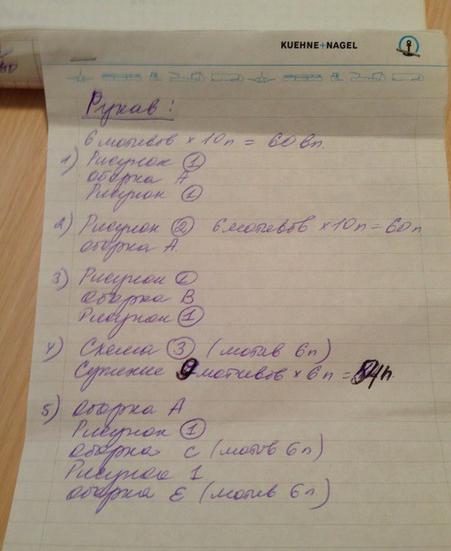 KUEHNE+NAGEL
Рукав:
6 мотивов × 10п = 60вп
1) Рисунок ①
оборка А
Рисунок ①
2) Рисунок ② 6 мотивов × 10п = 60п
оборка А
3) Рисунок ②
оборка В
Рисунок ①
4) Схема ③ (мотив 6п)
Сужение 9 мотивов × 6п = 54п
5) оборка А
Рисунок ①
оборка С (мотив 6п)
Рисунок 1
оборка Е (мотив 6п)